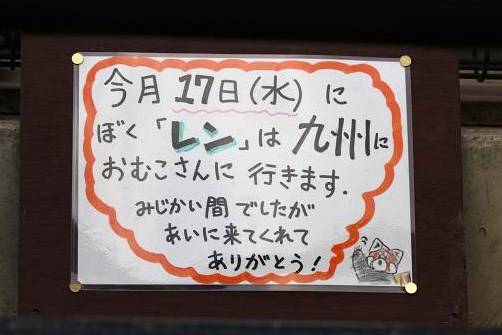 今月17日(水)に
ぼく「レン」は九州に
おむこさんに行きます.
みじかい間でしたが
あいに来てくれて
ありがとう!